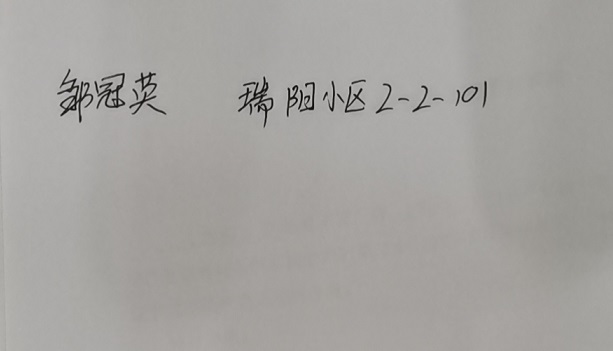 邹冠英 瑞阳小区2-2-101